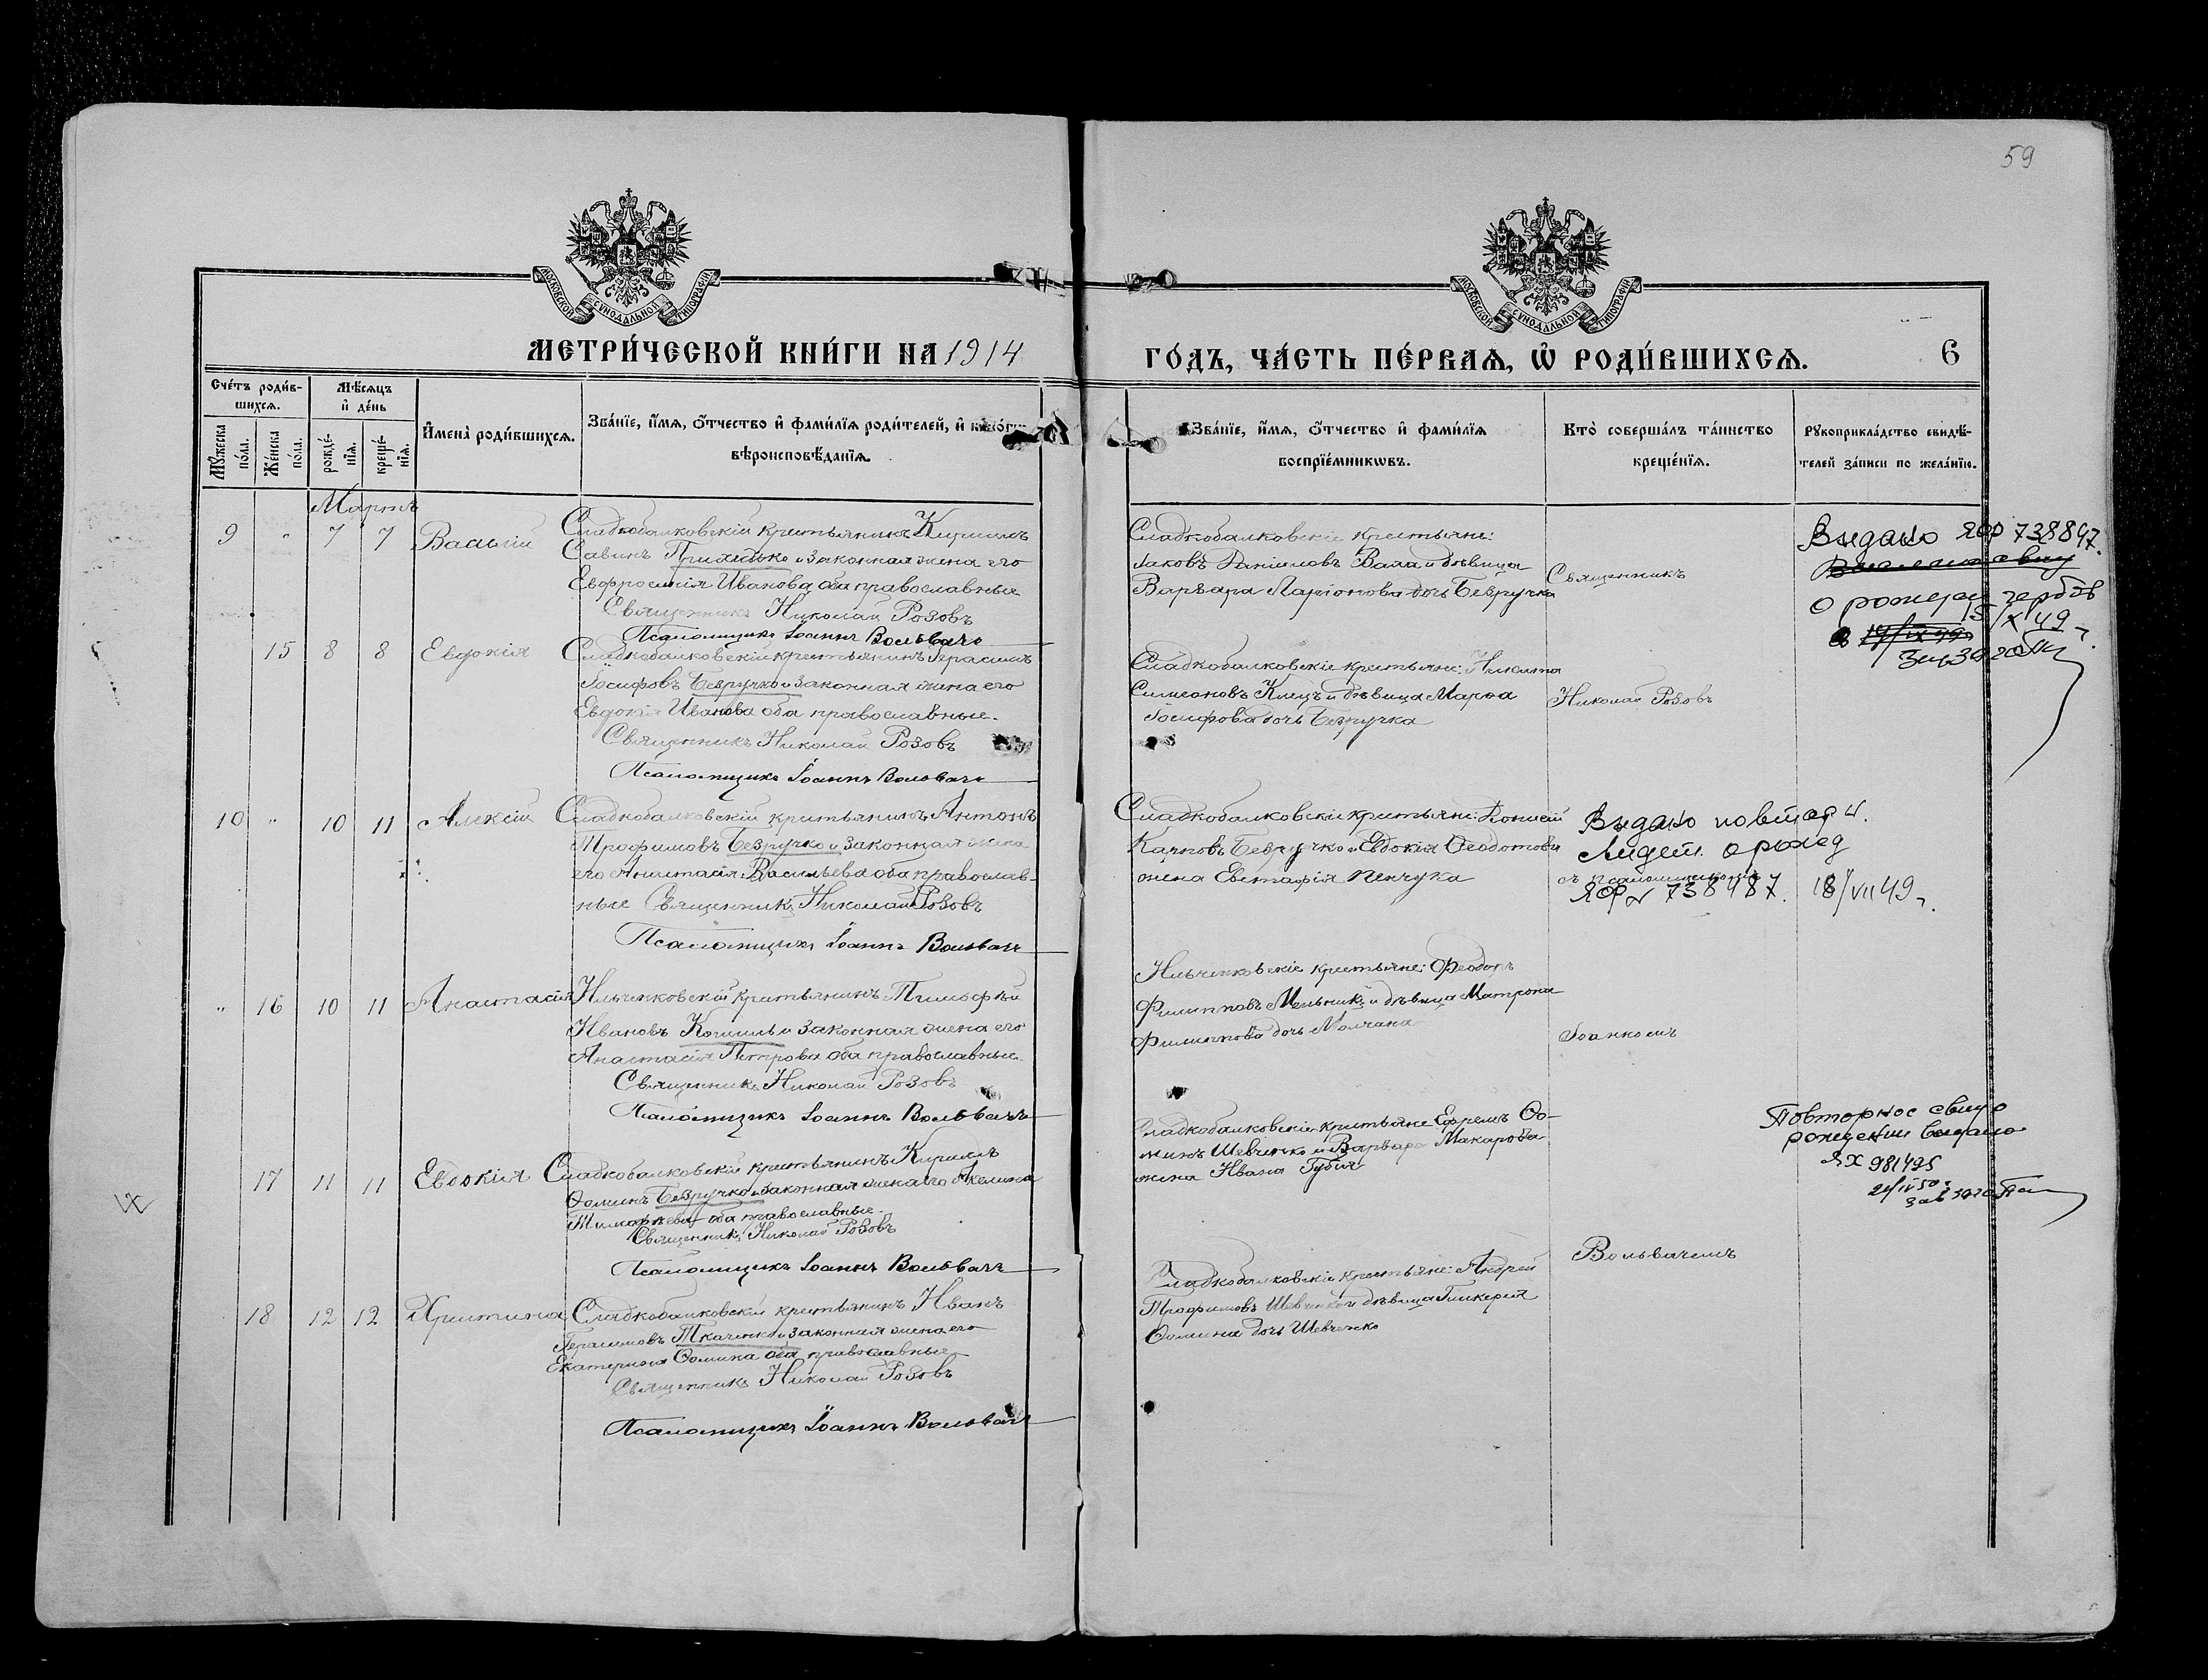 59
МОСКОВСКОЙ СѴНОДАЛЬНОЙ ТИПОГРАФІИ
МОСКОВСКОЙ СѴНОДАЛЬНОЙ ТИПОГРАФІИ
МЕТРИ́ЧЕСКОЙ КНИ́ГИ НА 1914
ГО́ДЪ, ЧА́СТЬ ПЕ́РВАѦ, Ѽ РОДИ́ВШИХСѦ.
6
Сче́тъ роди́в-
шихсѧ.
Мѣ́сѧцъ
и҆ де́нь
Мꙋ́жеска по́ла.
Же́нска по́ла.
рожде́-
нїѧ.
креще́-
нїѧ.
И҆мена̀ роди́вшихсѧ.
Зва́нїе, и҆́мѧ, ѻ҆́тчество и҆ фами́лїѧ роди́телей, и҆
вѣроисповѣ́данїѧ.
Зва́нїе, и҆́мѧ, ѻ҆́тчество и҆ фами́лїѧ
воспрїе́мникѡвъ.
Кто̀ соверша́лъ та́инство
креще́нїѧ.
Рꙋкоприкла́дство свидѣ́-
телей за́писи по жела́нїю.
Мартъ
9 " 7 7 Василій
Сладкобалковскій крестьянинъ Кириллъ
Савинъ Прихидько и законная жена его
Евфросинія Иванова, оба православные
Священникъ Николай Розовъ
Псаломщикъ Іоаннъ Вольвачъ
Сладкобалковскіе крестьяне:
Іаковъ Даніиловъ Вала и дѣвица
Варвара Ларіонова дочь Безручка
Священникъ
Выдано ЯФ 738897.
о рожден
15/X 49
15 8 8 Евдокія
Сладкобалковскій крестьянинъ Герасимъ
Іосифовъ Безручко и законная жена его
Евдокія Иванова оба православные.
Священникъ Николай Розовъ
Псаломщикъ Іоаннъ Вольвачъ
Сладкобалковскіе крестьяне: Никита
Симеоновъ Клецъ и дѣвица Марѳа
Іосифова дочь Безручка
Николай Розовъ
10 " 10 11 Алексій
Сладкобалковскій крестьянинъ Антонъ
Трофимовъ Безручко и законная жена
его Анастасія Васильева оба православ-
ные Священникъ Николай Розовъ
Псаломщикъ Іоаннъ Вольвачъ
Сладкобалковскіе крестьяне: Діонисій
Карповъ Безручко и Евдокія Ѳеодотова
жена Евстафія Пенчука
съ псаломщикомъ
Выдано повторн.
о рожд
ЯФ № 738487. 18/VII 49 г.
" 16 10 11 Анастасія
Ильченковскій крестьянинъ Тимофѣй
Ивановъ Кошиль и законная жена его
Анастасія Петрова оба православные.
Священникъ Николай Розовъ
Псаломщикъ Іоаннъ Вольвачъ
Ильченковскіе крестьяне: Феодоръ
Филипповъ Мельникъ и дѣвица Матрона
Филиппова дочь Молчана
Іоанномъ
17 11 11 Евдокія
Сладкобалковскій крестьянинъ Кириллъ
Ѳоминъ Безручко и законная жена его Акелина
Тимофѣева оба православные.
Священникъ Николай Розовъ
Псаломщикъ Іоаннъ Вольвачъ
Сладкобалковскіе крестьяне Ефремъ Ѳо-
минъ Шевченко и Варвара Макарова
жена Ивана Губія
Вольвачемъ
Повторное свид о
рождении выдано
ЯХ 981495
21/IV 50 г
18 12 12 Христина
Сладкобалковскій крестьянинъ Иванъ
Герасимовъ Ткаченко и законная жена его
Екатерина Ѳомина оба православные
Священникъ Николай Розовъ
Псаломщикъ Іоаннъ Вольвачъ
Сладкобалковскіе крестьяне: Андрей
Трофимовъ Шевченко и дѣвица Гликерія
Ѳомина дочь Шевченко